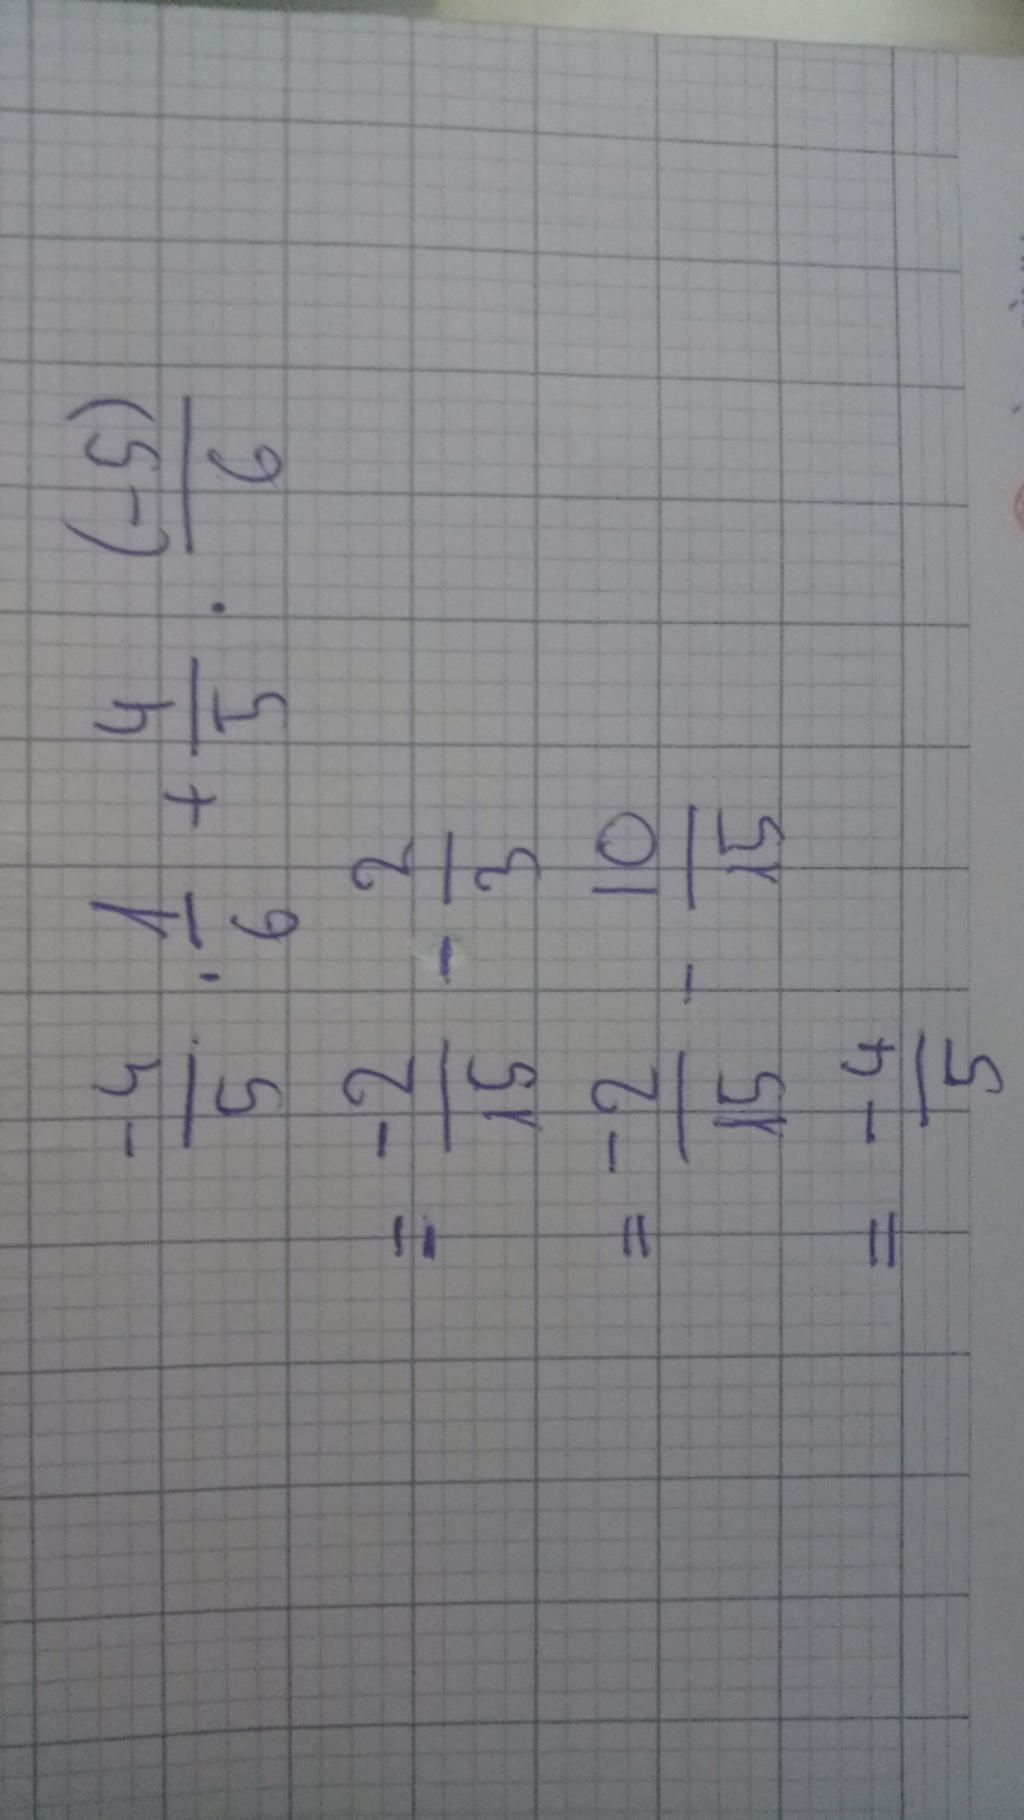 -4/5 · 1/6 + 4/5 · (-5)/6
= -2/15 - 2/3
= -2/15 - 10/15
= -4/5